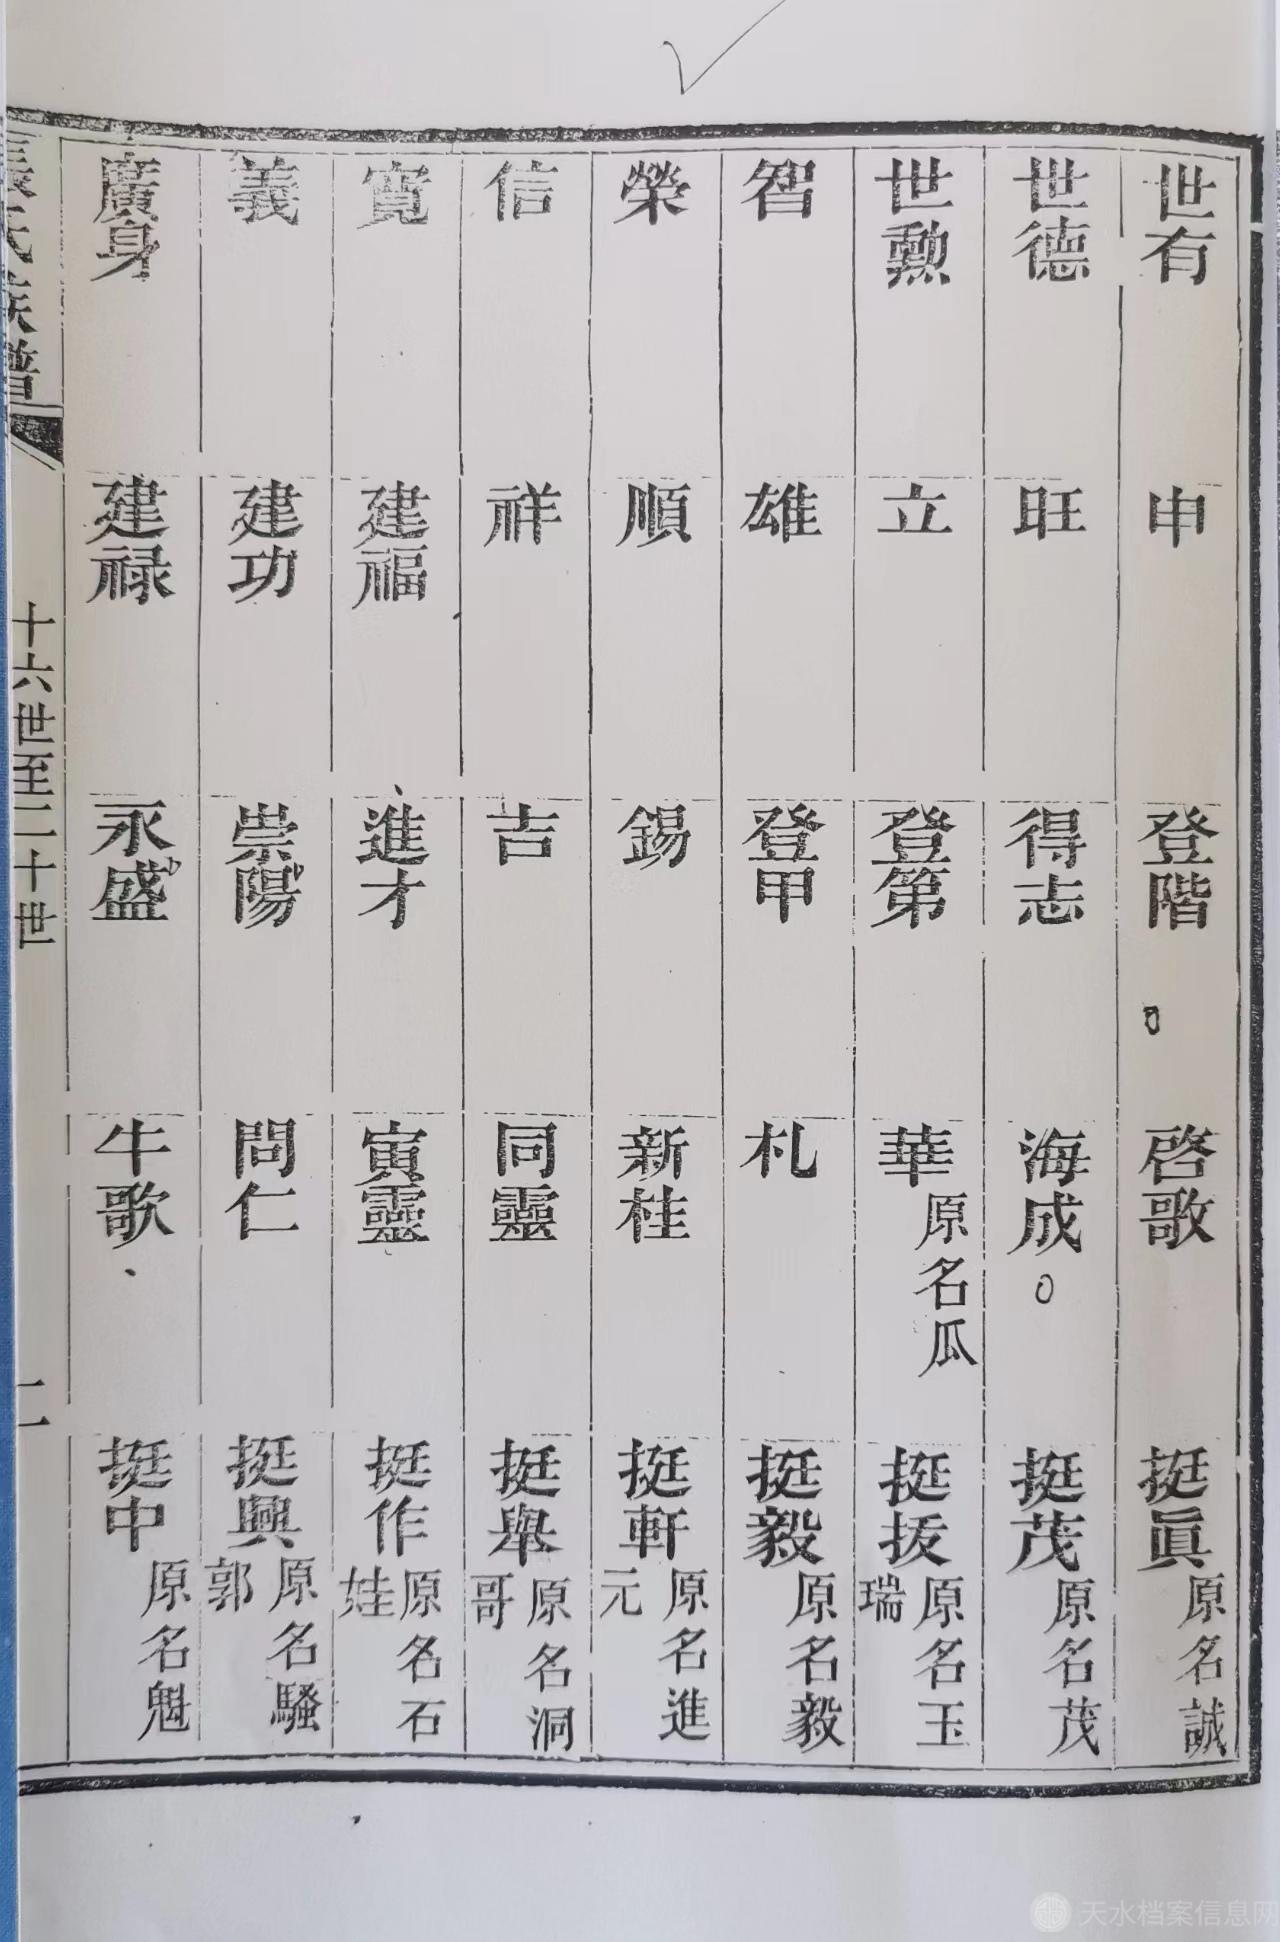 世有
申
登階
啓歌
挺眞 原名誠
世德
旺
得志
海成
挺茂 原名茂
世勲
立
登第
華 原名瓜
挺拔 原名玉瑞
智
雄
登甲
札
挺毅 原名毅
榮
順
錫
新桂
挺軒 原名進元
信
祥
吉
同靈
挺舉 原名洞哥
寬
建福
進才
寅靈
挺作 原名石娃
義
建功
崇陽
問仁
挺興 原名騷郭
廣身
建禄
永盛
牛歌
挺中 原名魁
張氏族譜
十六世至二十世
二
天水档案信息网